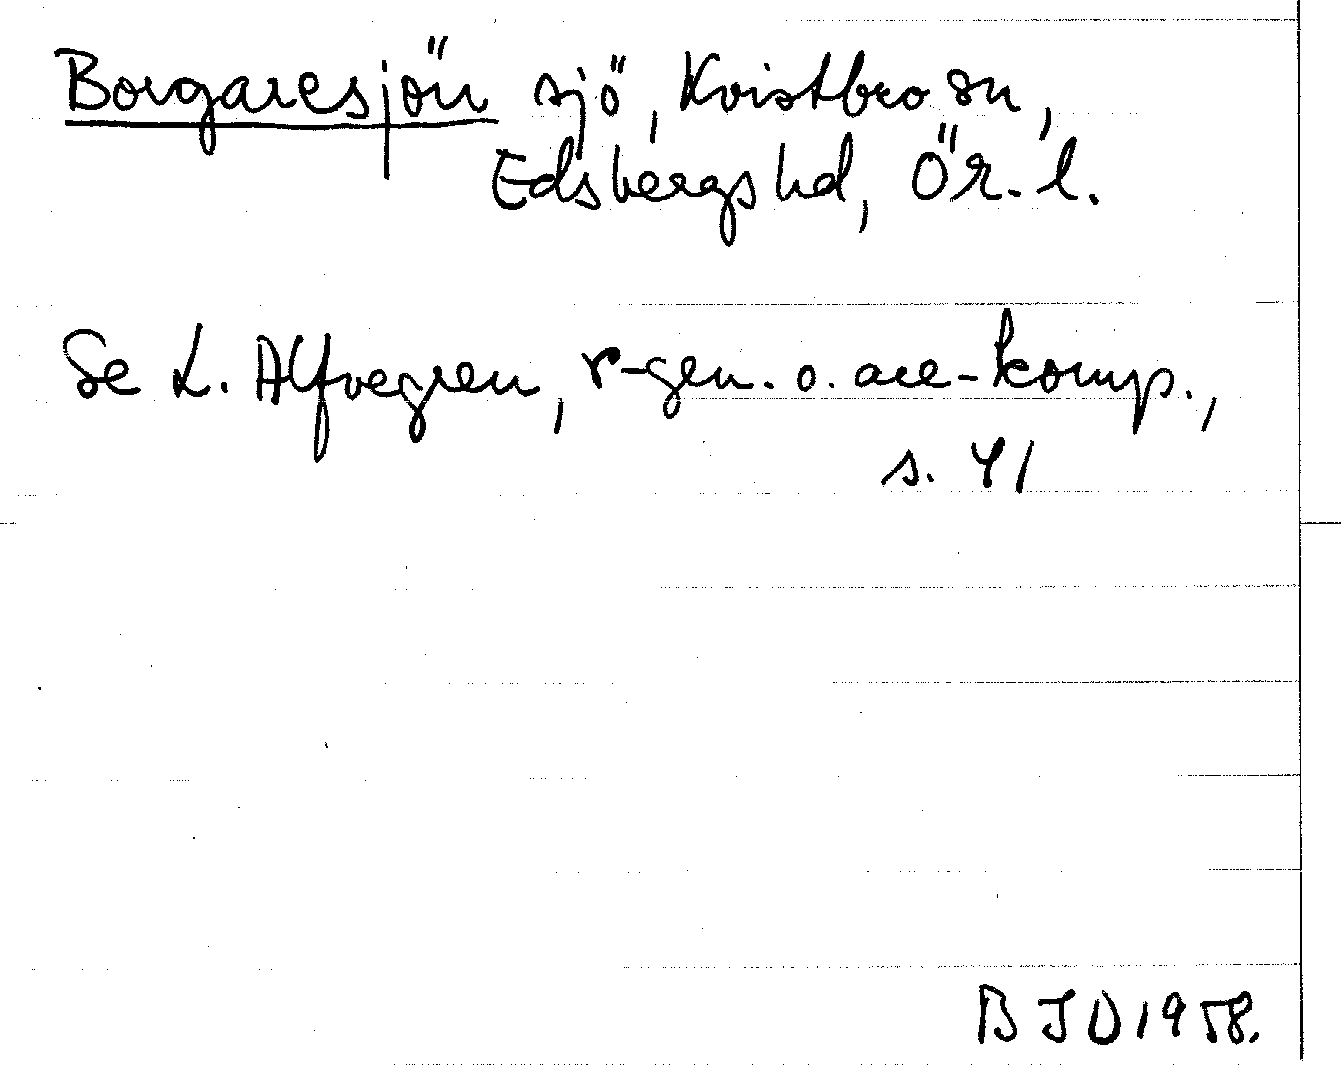 Borgaresjön sjö, Kvistbro sn,
Edsbergs hd, Ör. l.
Se L. Alfvegren, r-gen. o. are-komp.,
s. 41
B J D 1958.